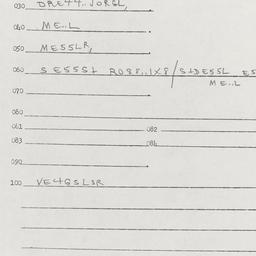 030 DRE44..JORGL,
040 ME..L
050 MESSLR,
060 SESSSL R088..1X8/S+DESSL ES
ME..L
070
080
081 082
083 084
090
100 VE4GSLSR